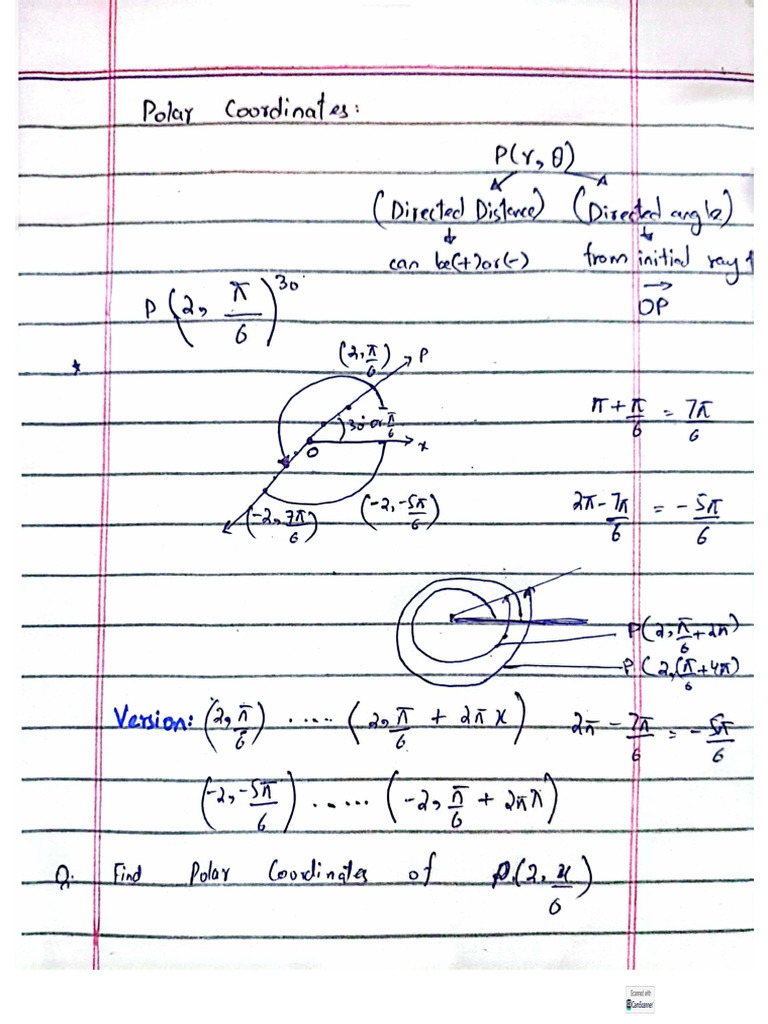 Polar Coordinates:
P(r, θ)
(Directed Distance) (Directed angle)
can be(+)or(-) from initial ray
→
OP
P(2, π/6) 30°
(2, π/6) P
30° or π/6
O x
π + π/6 = 7π/6
(-2, 7π/6) (-2, -5π/6)
2π - 7π/6 = -5π/6
P(2, π/6 + 2π)
P(2, (π/6 + 4π)
Version: (2, π/6) ..... (2, π/6 + 2πx) 2π - 7π/6 = -5π/6
(-2, -5π/6) ..... (-2, π/6 + 2πx)
Q: Find Polar Coordinates of P.(2, x/6)
Scanned with
CamScanner